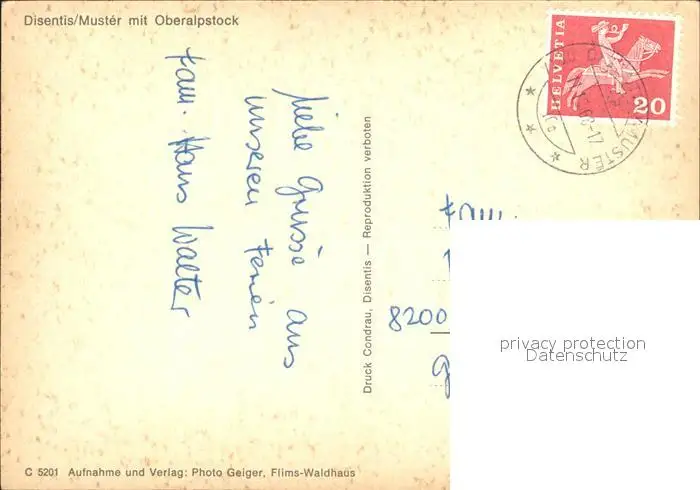 Disentis/Mustér mit Oberalpstock
HELVETIA
20
MUSTER
Liebe Grüsse aus
unseren Ferien
Fam. Hans Walter
Druck Condrau, Disentis — Reproduktion verboten
Fam.
8200
privacy protection
Datenschutz
C 5201 Aufnahme und Verlag: Photo Geiger, Flims-Waldhaus